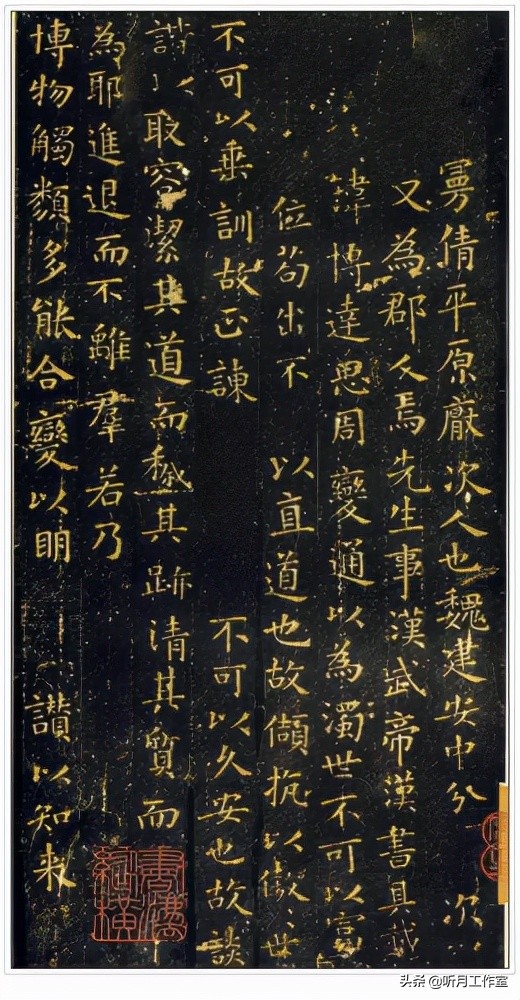 曼倩平原厭次人也魏建安中分次
又為郡人焉先生事漢武帝漢書具載
諱博達思周變通以為濁世不可以富
位苟出不以直道也故傾抗以傲世
不可以垂訓故正諫不可以久安也故談
諧以取容潔其道而穢其跡清其質而
為耶進退而不離羣若乃
博物觸類多能合變以明讃以知来
头条 @听月工作室